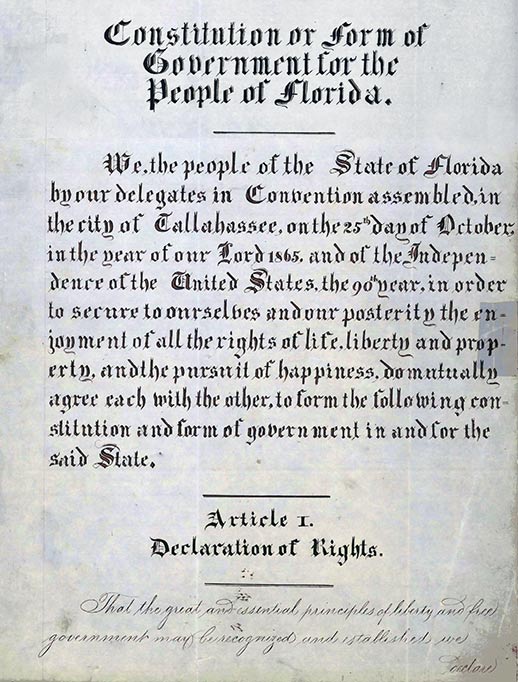 Constitution or Form of
Government for the
People of Florida.
We, the people of the State of Florida
by our delegates in Convention assembled, in
the city of Tallahassee, on the 25th day of October,
in the year of our Lord 1865, and of the Indepen=
dence of the United States, the 90th year, in order
to secure to ourselves and our posterity the en-
joyment of all the rights of life, liberty and prop-
erty, and the pursuit of happiness, do mutually
agree each with the other, to form the following con-
stitution and form of government in and for the
said State.
Article I.
Declaration of Rights.
That the great and essential principles of liberty and free
government may be recognized and established we
declare